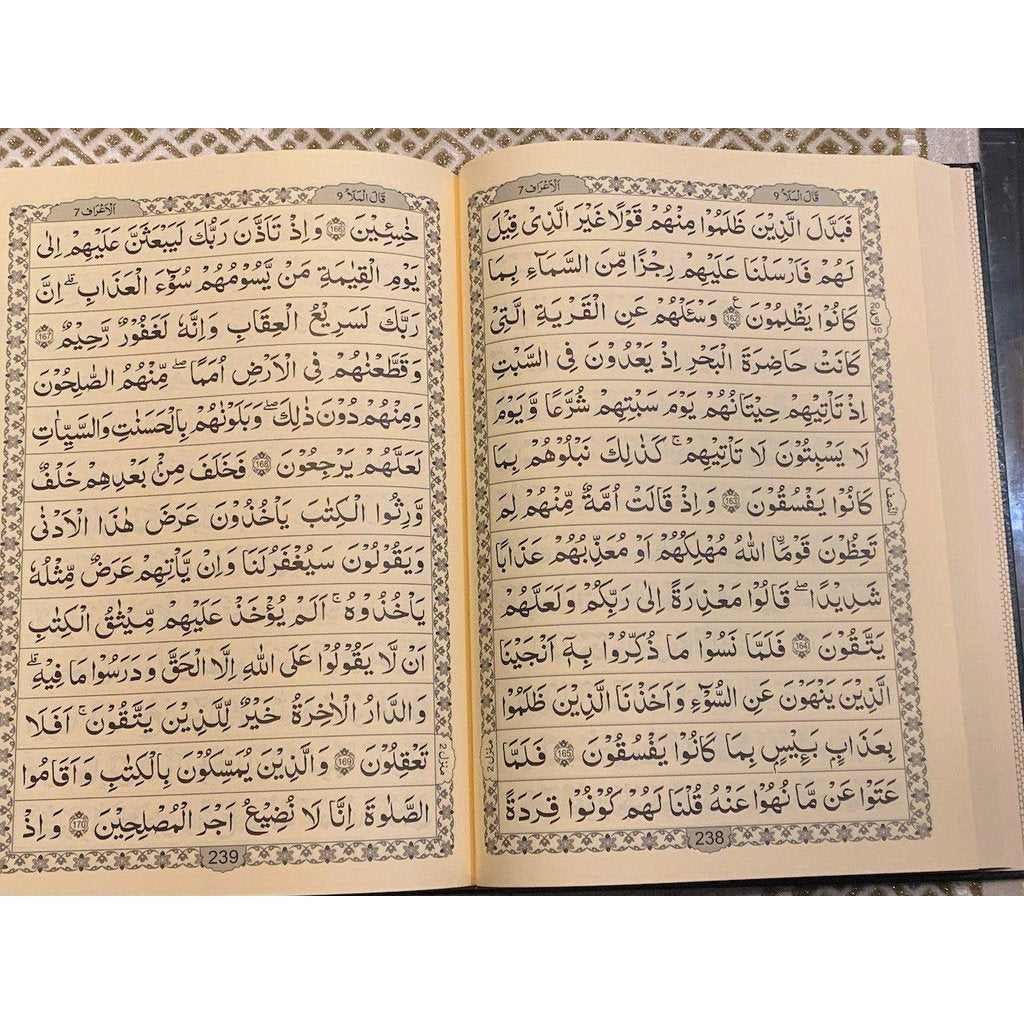 قَالَ الْمَلَاُ ٩
اَلْاَعْرَاف ٧
فَبَدَّلَ الَّذِيْنَ ظَلَمُوْا مِنْهُمْ قَوْلًا غَيْرَ الَّذِىْ قِيْلَ
لَهُمْ فَاَرْسَلْنَا عَلَيْهِمْ رِجْزًا مِّنَ السَّمَآءِ بِمَا
كَانُوْا يَظْلِمُوْنَ ࣖ 162 وَسْـَٔلْهُمْ عَنِ الْقَرْيَةِ الَّتِىْ
كَانَتْ حَاضِرَةَ الْبَحْرِ اِذْ يَعْدُوْنَ فِى السَّبْتِ
اِذْ تَاْتِيْهِمْ حِيْتَانُهُمْ يَوْمَ سَبْتِهِمْ شُرَّعًا وَّيَوْمَ
لَا يَسْبِتُوْنَ لَا تَاْتِيْهِمْ ۚ كَذٰلِكَ نَبْلُوْهُمْ بِمَا
كَانُوْا يَفْسُقُوْنَ 163 وَاِذْ قَالَتْ اُمَّةٌ مِّنْهُمْ لِمَ
تَعِظُوْنَ قَوْمًا ۙ اللّٰهُ مُهْلِكُهُمْ اَوْ مُعَذِّبُهُمْ عَذَابًا
شَدِيْدًا ؕ قَالُوْا مَعْذِرَةً اِلٰى رَبِّكُمْ وَلَعَلَّهُمْ
يَتَّقُوْنَ 164 فَلَمَّا نَسُوْا مَا ذُكِّرُوْا بِهٖٓ اَنْجَيْنَا
الَّذِيْنَ يَنْهَوْنَ عَنِ السُّوْٓءِ وَاَخَذْنَا الَّذِيْنَ ظَلَمُوْا
بِعَذَابٍۭ بَـِٕيْسٍۭ بِمَا كَانُوْا يَفْسُقُوْنَ 165 فَلَمَّا
عَتَوْا عَنْ مَّا نُهُوْا عَنْهُ قُلْنَا لَهُمْ كُوْنُوْا قِرَدَةً
20
ع
5
10
النصف
منزل 2
238
قَالَ الْمَلَاُ ٩
اَلْاَعْرَاف ٧
خٰسِـِٕيْنَ 166 وَاِذْ تَاَذَّنَ رَبُّكَ لَيَبْعَثَنَّ عَلَيْهِمْ اِلٰى
يَوْمِ الْقِيٰمَةِ مَنْ يَّسُوْمُهُمْ سُوْٓءَ الْعَذَابِ ؕ اِنَّ
رَبَّكَ لَسَرِيْعُ الْعِقَابِ وَاِنَّهٗ لَغَفُوْرٌ رَّحِيْمٌ 167
وَقَطَّعْنٰهُمْ فِى الْاَرْضِ اُمَمًا ۚ مِنْهُمُ الصّٰلِحُوْنَ
وَمِنْهُمْ دُوْنَ ذٰلِكَ ؗ وَبَلَوْنٰهُمْ بِالْحَسَنٰتِ وَالسَّيِّاٰتِ
لَعَلَّهُمْ يَرْجِعُوْنَ 168 فَخَلَفَ مِنْۢ بَعْدِهِمْ خَلْفٌ
وَّرِثُوا الْكِتٰبَ يَاْخُذُوْنَ عَرَضَ هٰذَا الْاَدْنٰى
وَيَقُوْلُوْنَ سَيُغْفَرُ لَنَا وَاِنْ يَّاْتِهِمْ عَرَضٌ مِّثْلُهٗ
يَاْخُذُوْهُ ؕ اَلَمْ يُؤْخَذْ عَلَيْهِمْ مِّيْثٰقُ الْكِتٰبِ
اَنْ لَّا يَقُوْلُوْا عَلَى اللّٰهِ اِلَّا الْحَقَّ وَدَرَسُوْا مَا فِيْهِ ؕ
وَالدَّارُ الْاٰخِرَةُ خَيْرٌ لِّلَّذِيْنَ يَتَّقُوْنَ ؕ اَفَلَا
تَعْقِلُوْنَ 169 وَالَّذِيْنَ يُمَسِّكُوْنَ بِالْكِتٰبِ وَاَقَامُوا
الصَّلٰوةَ اِنَّا لَا نُضِيْعُ اَجْرَ الْمُصْلِحِيْنَ 170 وَاِذْ
منزل 2
239